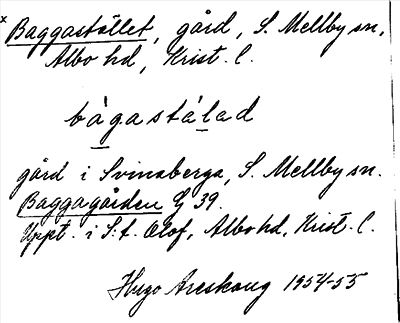 x Baggastället, gård, S. Mellby sn,
Albo hd, Krist. l.
bàgastálad
gård i Svinaberga, S. Mellby sn.
Baggagården G 39.
Uppt. i S:t Olof, Albo hd, Krist. l.
Hugo Areskoug 1954-55